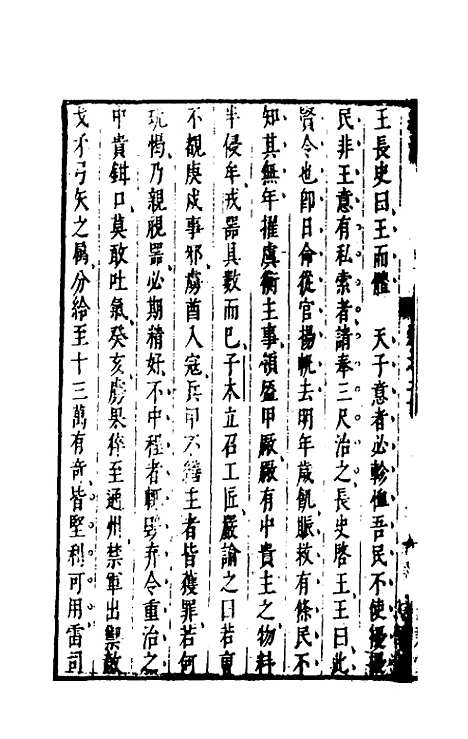 王長史曰王而體　天子意者必軫恤吾民不使擾擾
民非王意有私索者請奉三尺治之長史啓王王曰此
賢令也卽日侖從官揚帆去明年歲飢賑救有條民不
知其無年擢虞衡主事領盔甲厰厰有中貴主之物料
半侵牟戎器具數而已子木立召工匠嚴諭之曰若曹
不觀庚戌事邪虜酋入寇兵甲不繕主者皆獲罪若何
玩愒乃親視器必期精好不中程者輒毀弃令重治之
中貴鉗口莫敢吐氣癸亥虜果倅至通州禁軍出禦敵
戈矛弓矢之屬分給至十三萬有奇皆堅利可用雷司